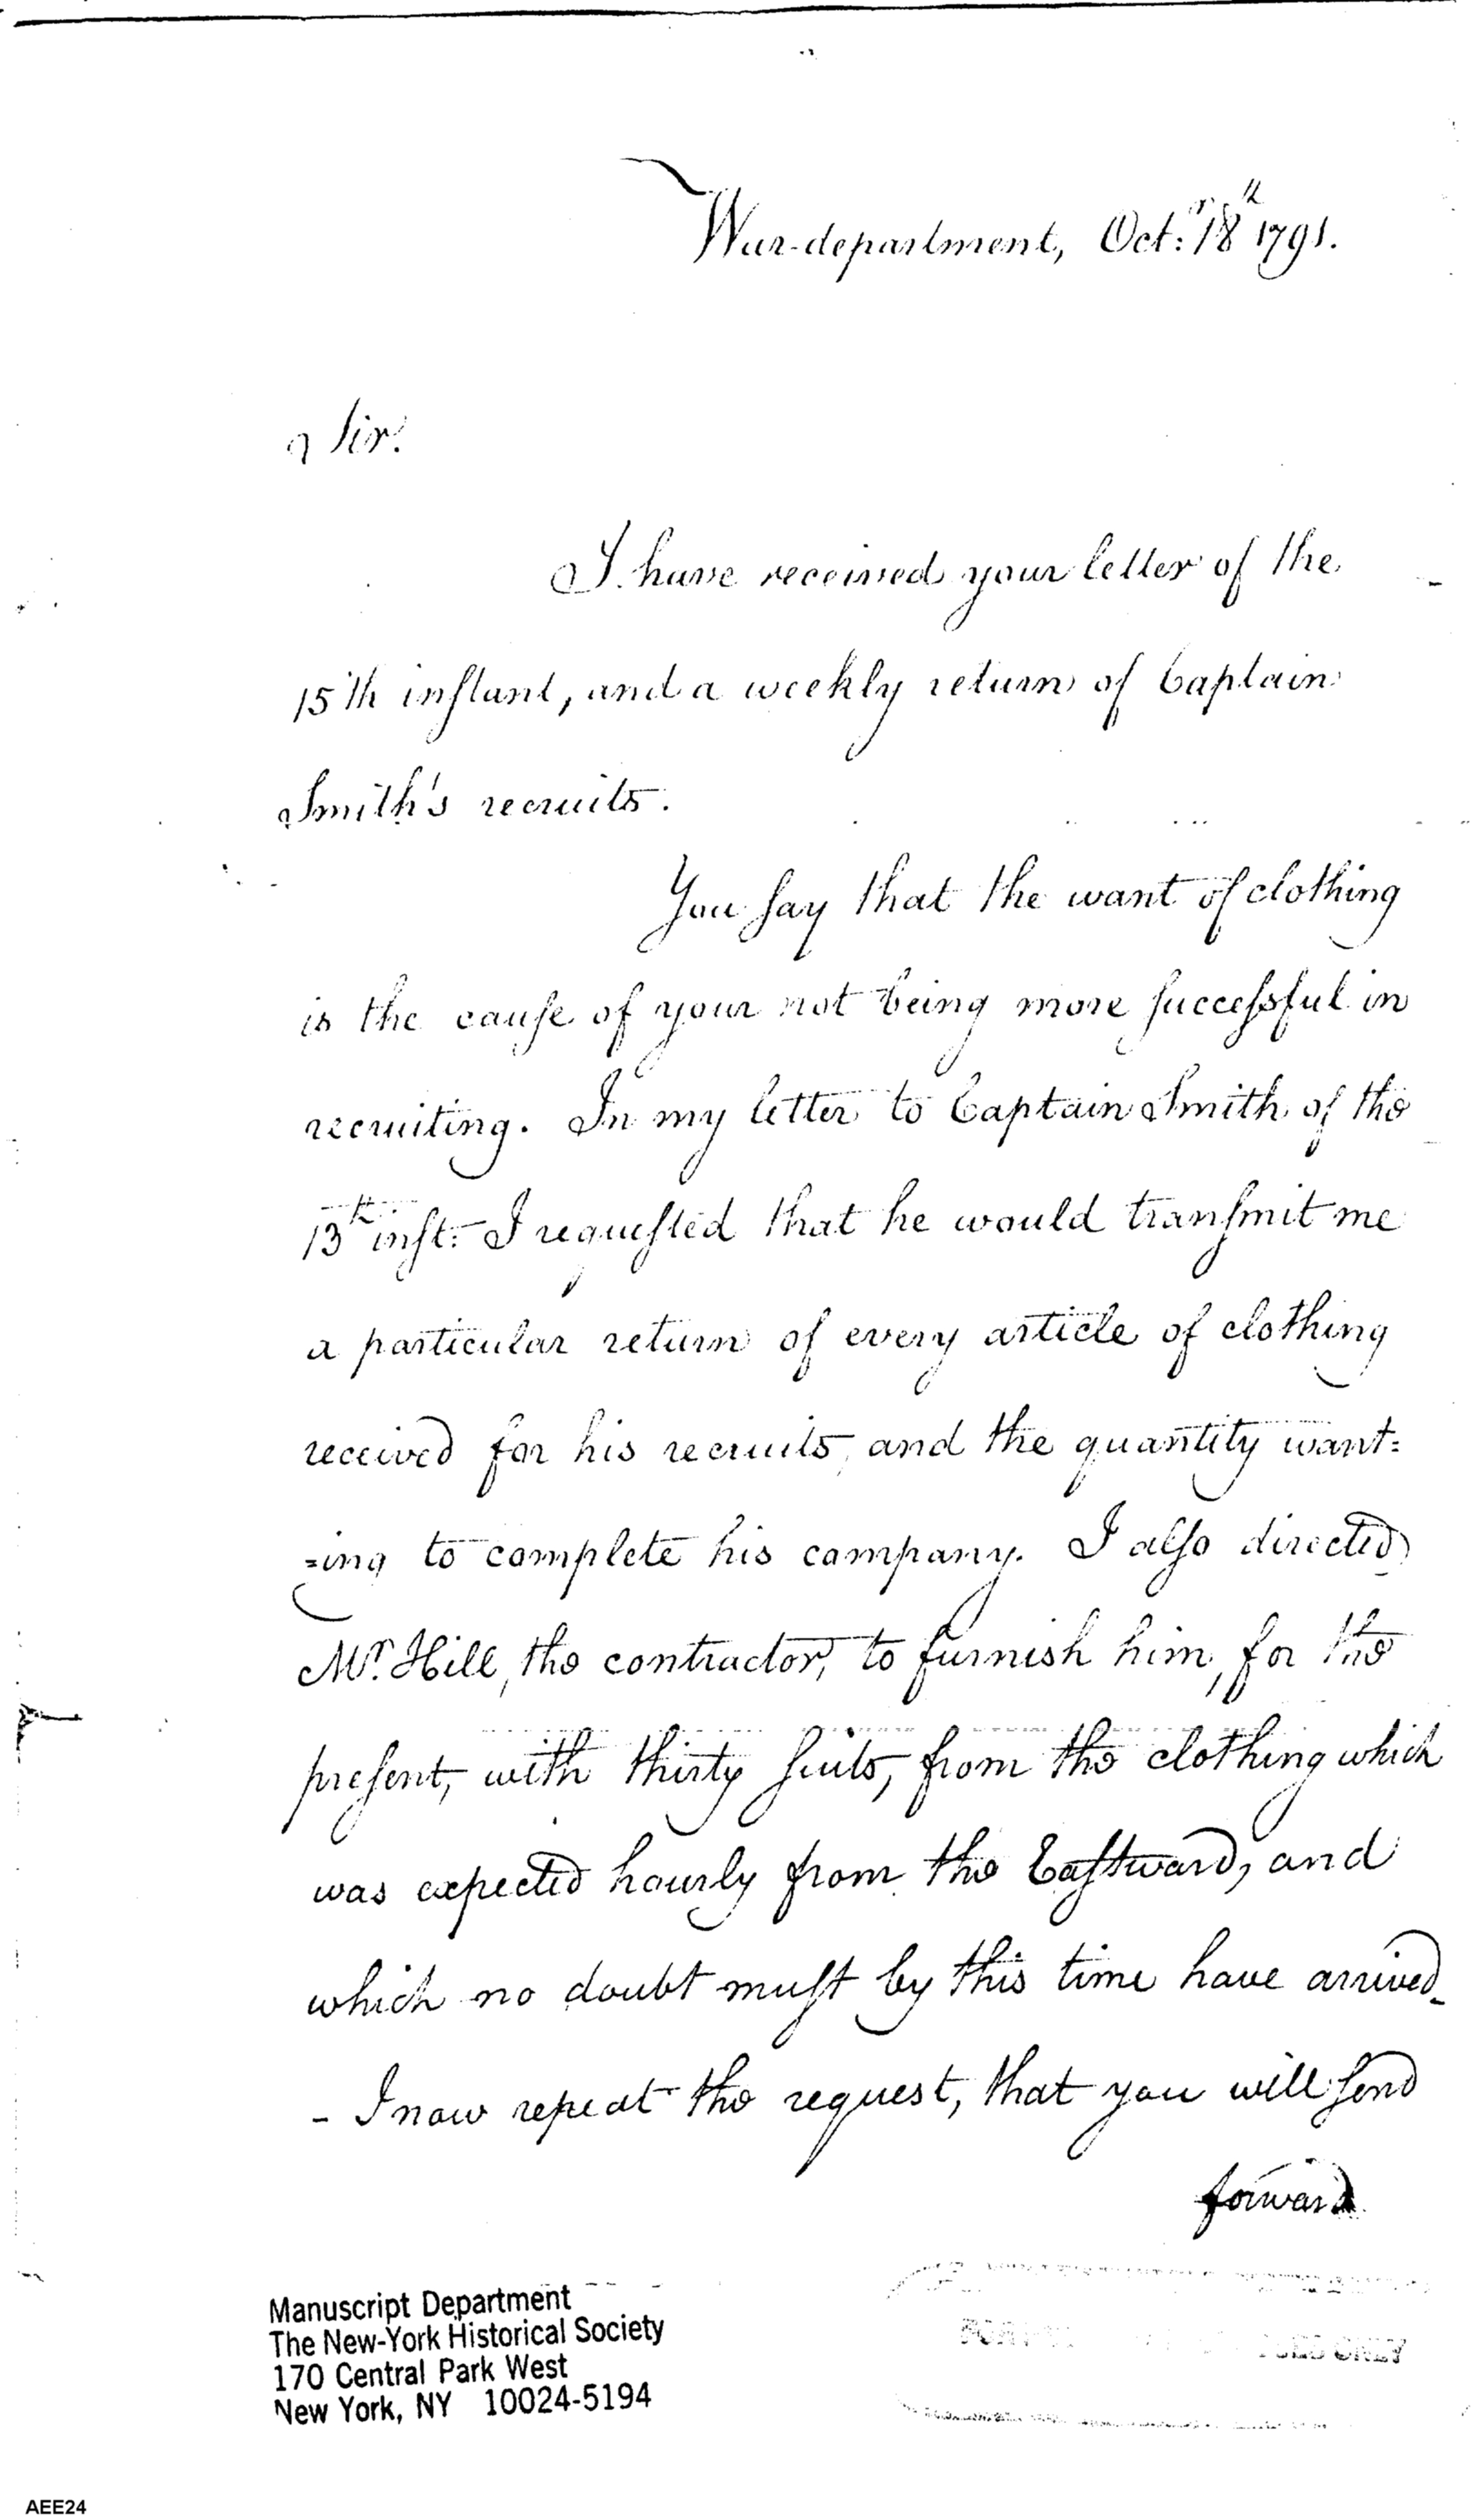 War-department, Oct:r 18th 1791.
Sir.
I have received your letter of the
15th instant, and a weekly return of Captain
Smith's recruits.
You say that the want of clothing
is the cause of your not being more successful in
recruiting. In my letter to Captain Smith of the
13th inst: I requested that he would transmit me
a particular return of every article of clothing
received for his recruits, and the quantity want=
=ing to complete his company. I also directed
Mr. Hill, the contractor, to furnish him, for the
present, with thirty suits, from the clothing which
was expected hourly from the Eastward, and
which no doubt must by this time have arrived
- I now repeat the request, that you will send
forward
Manuscript Department
The New-York Historical Society
170 Central Park West
New York, NY 10024-5194
AEE24